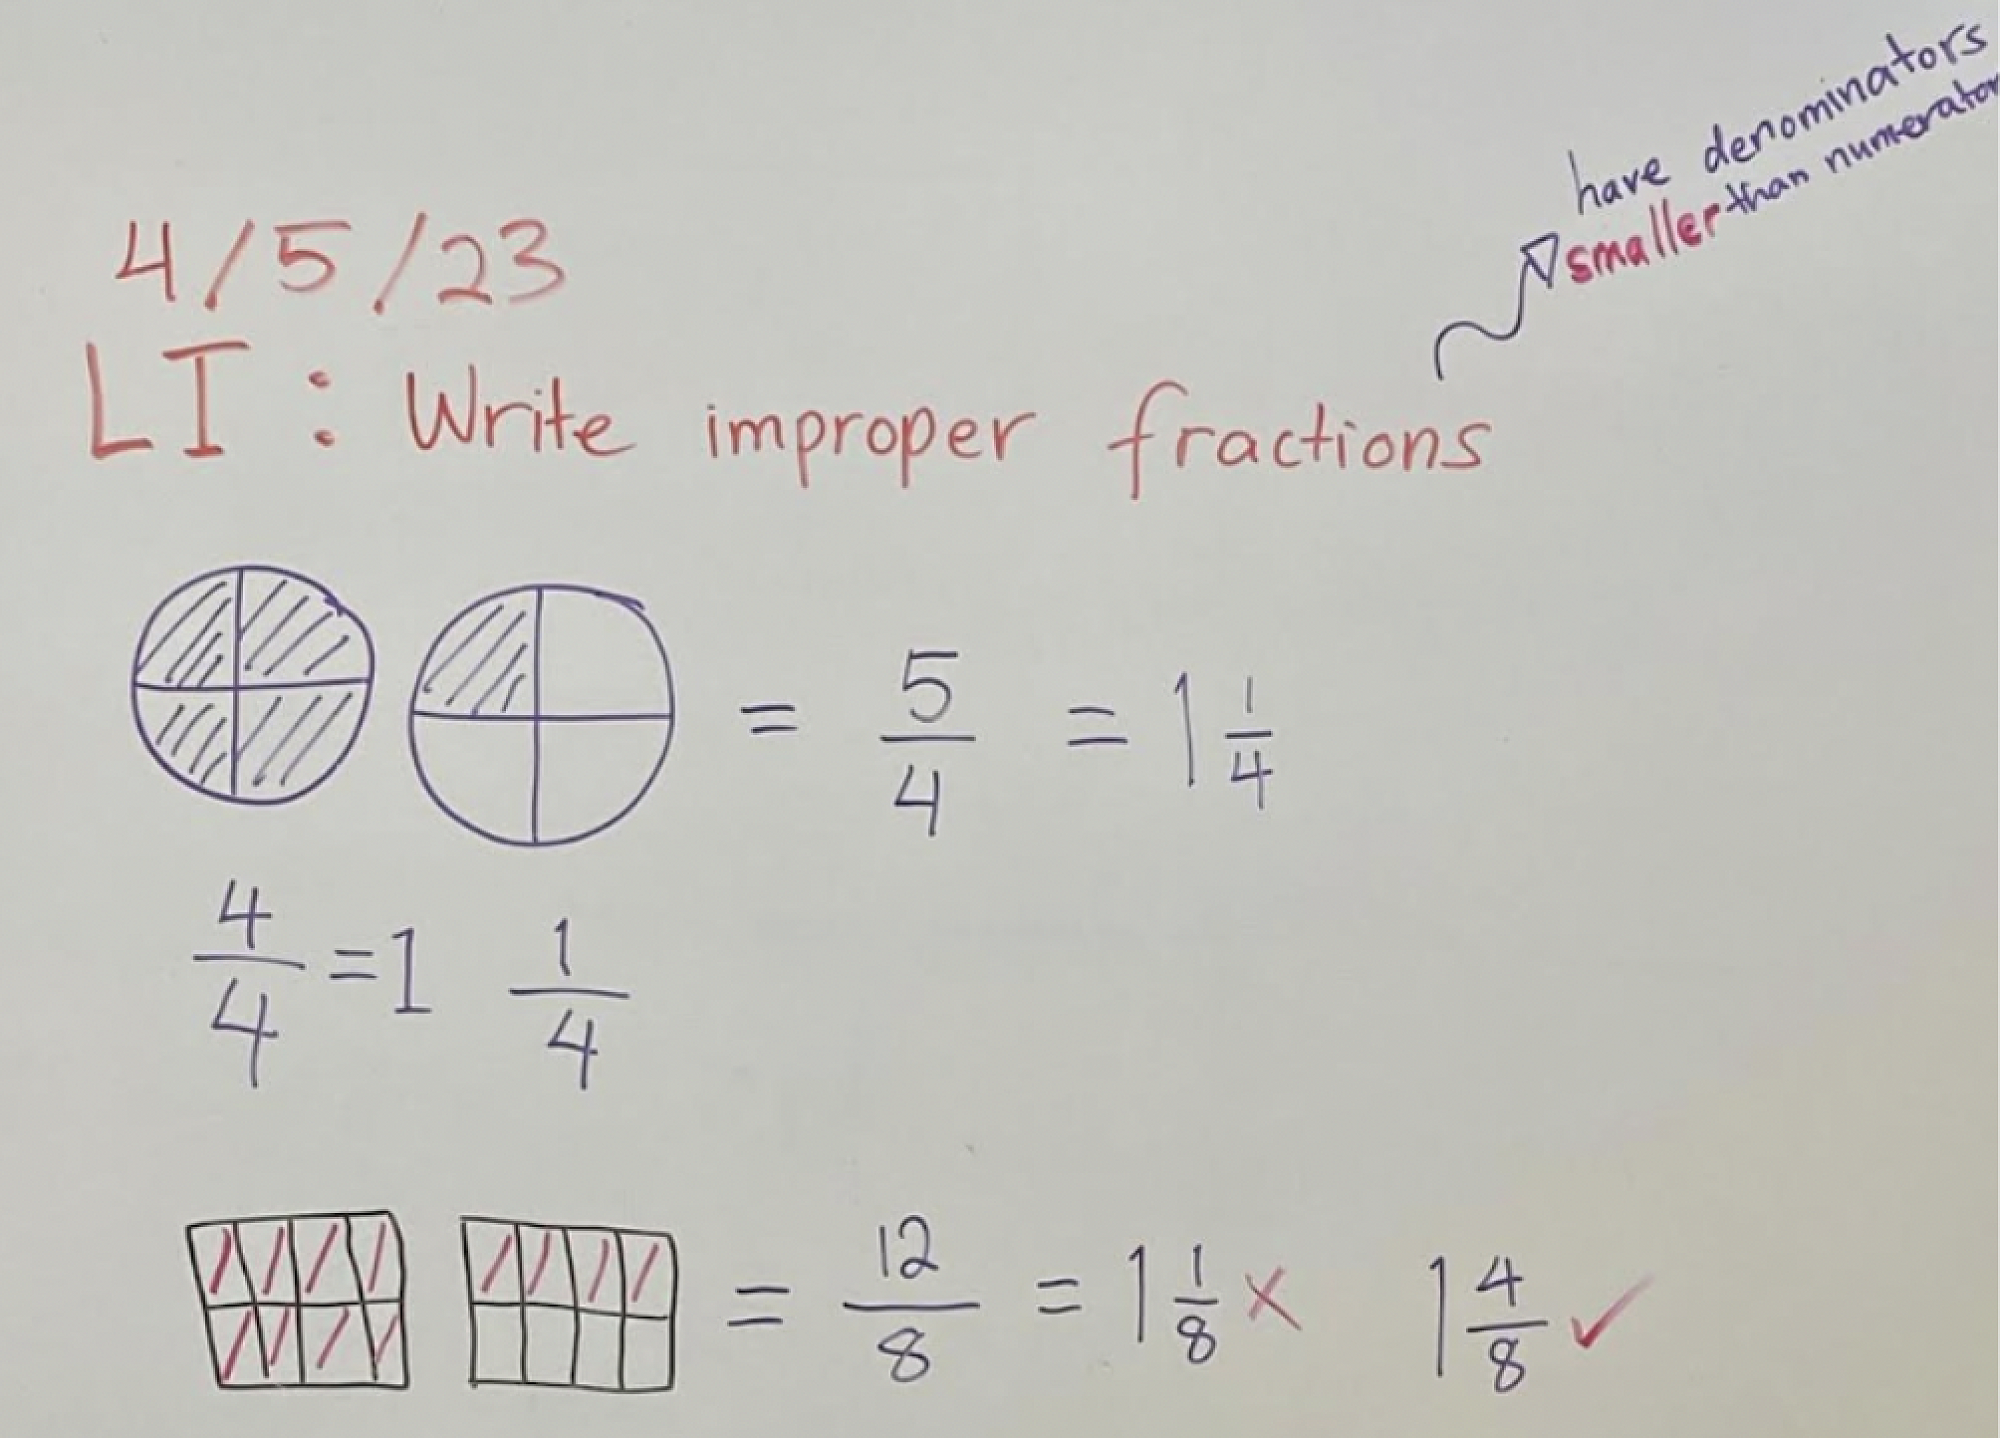 have denominators
smaller than numerator
4/5/23
LI: Write improper fractions
= 5/4 = 1 1/4
4/4 = 1 1/4
= 12/8 = 1 1/8 × 1 4/8 ✓